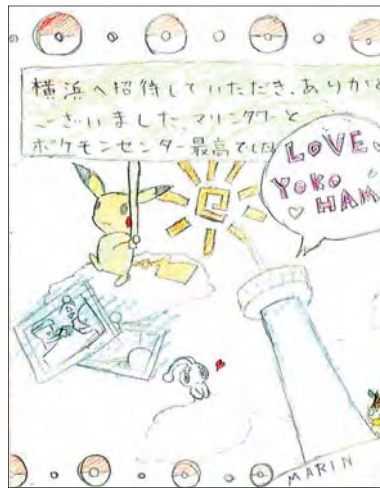 横浜へ招待していただき、ありがと
ございました。マリンタワーと
ポケモンセンター最高でした
LOVE
YOKO
HAM
MARIN